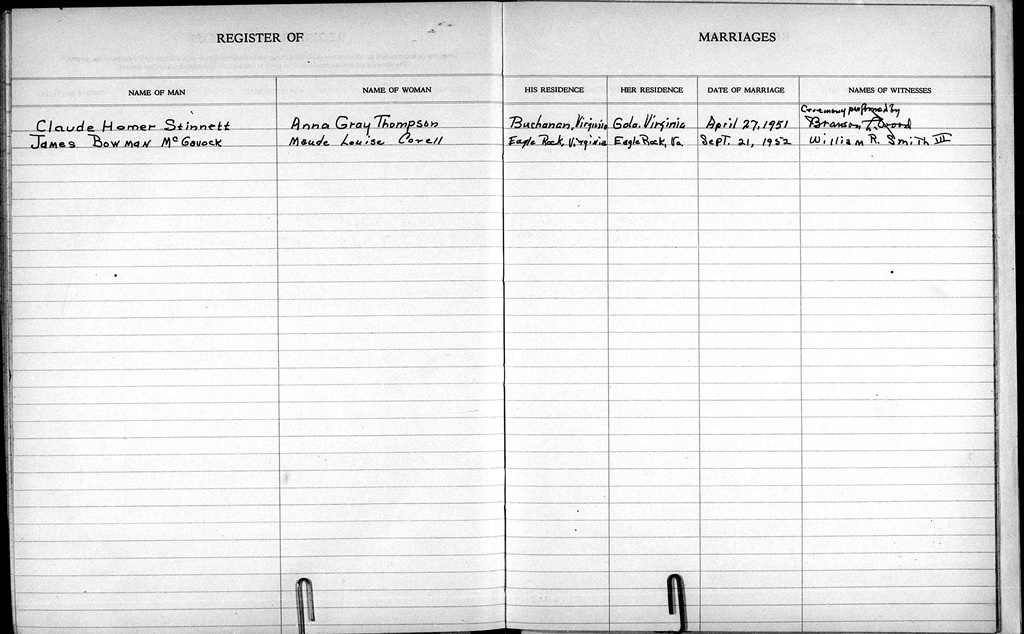 REGISTER OF MARRIAGES
NAME OF MAN NAME OF WOMAN HIS RESIDENCE HER RESIDENCE DATE OF MARRIAGE NAMES OF WITNESSES
Ceremony performed by
Claude Homer Stinnett Anna Gray Thompson Buchanan, Virginia Gala, Virginia April 27, 1951 Branson L. Wood
James Bowman McGavock Maude Louise Corell Eagle Rock, Virginia Eagle Rock, Va Sept. 21, 1952 William R. Smith III